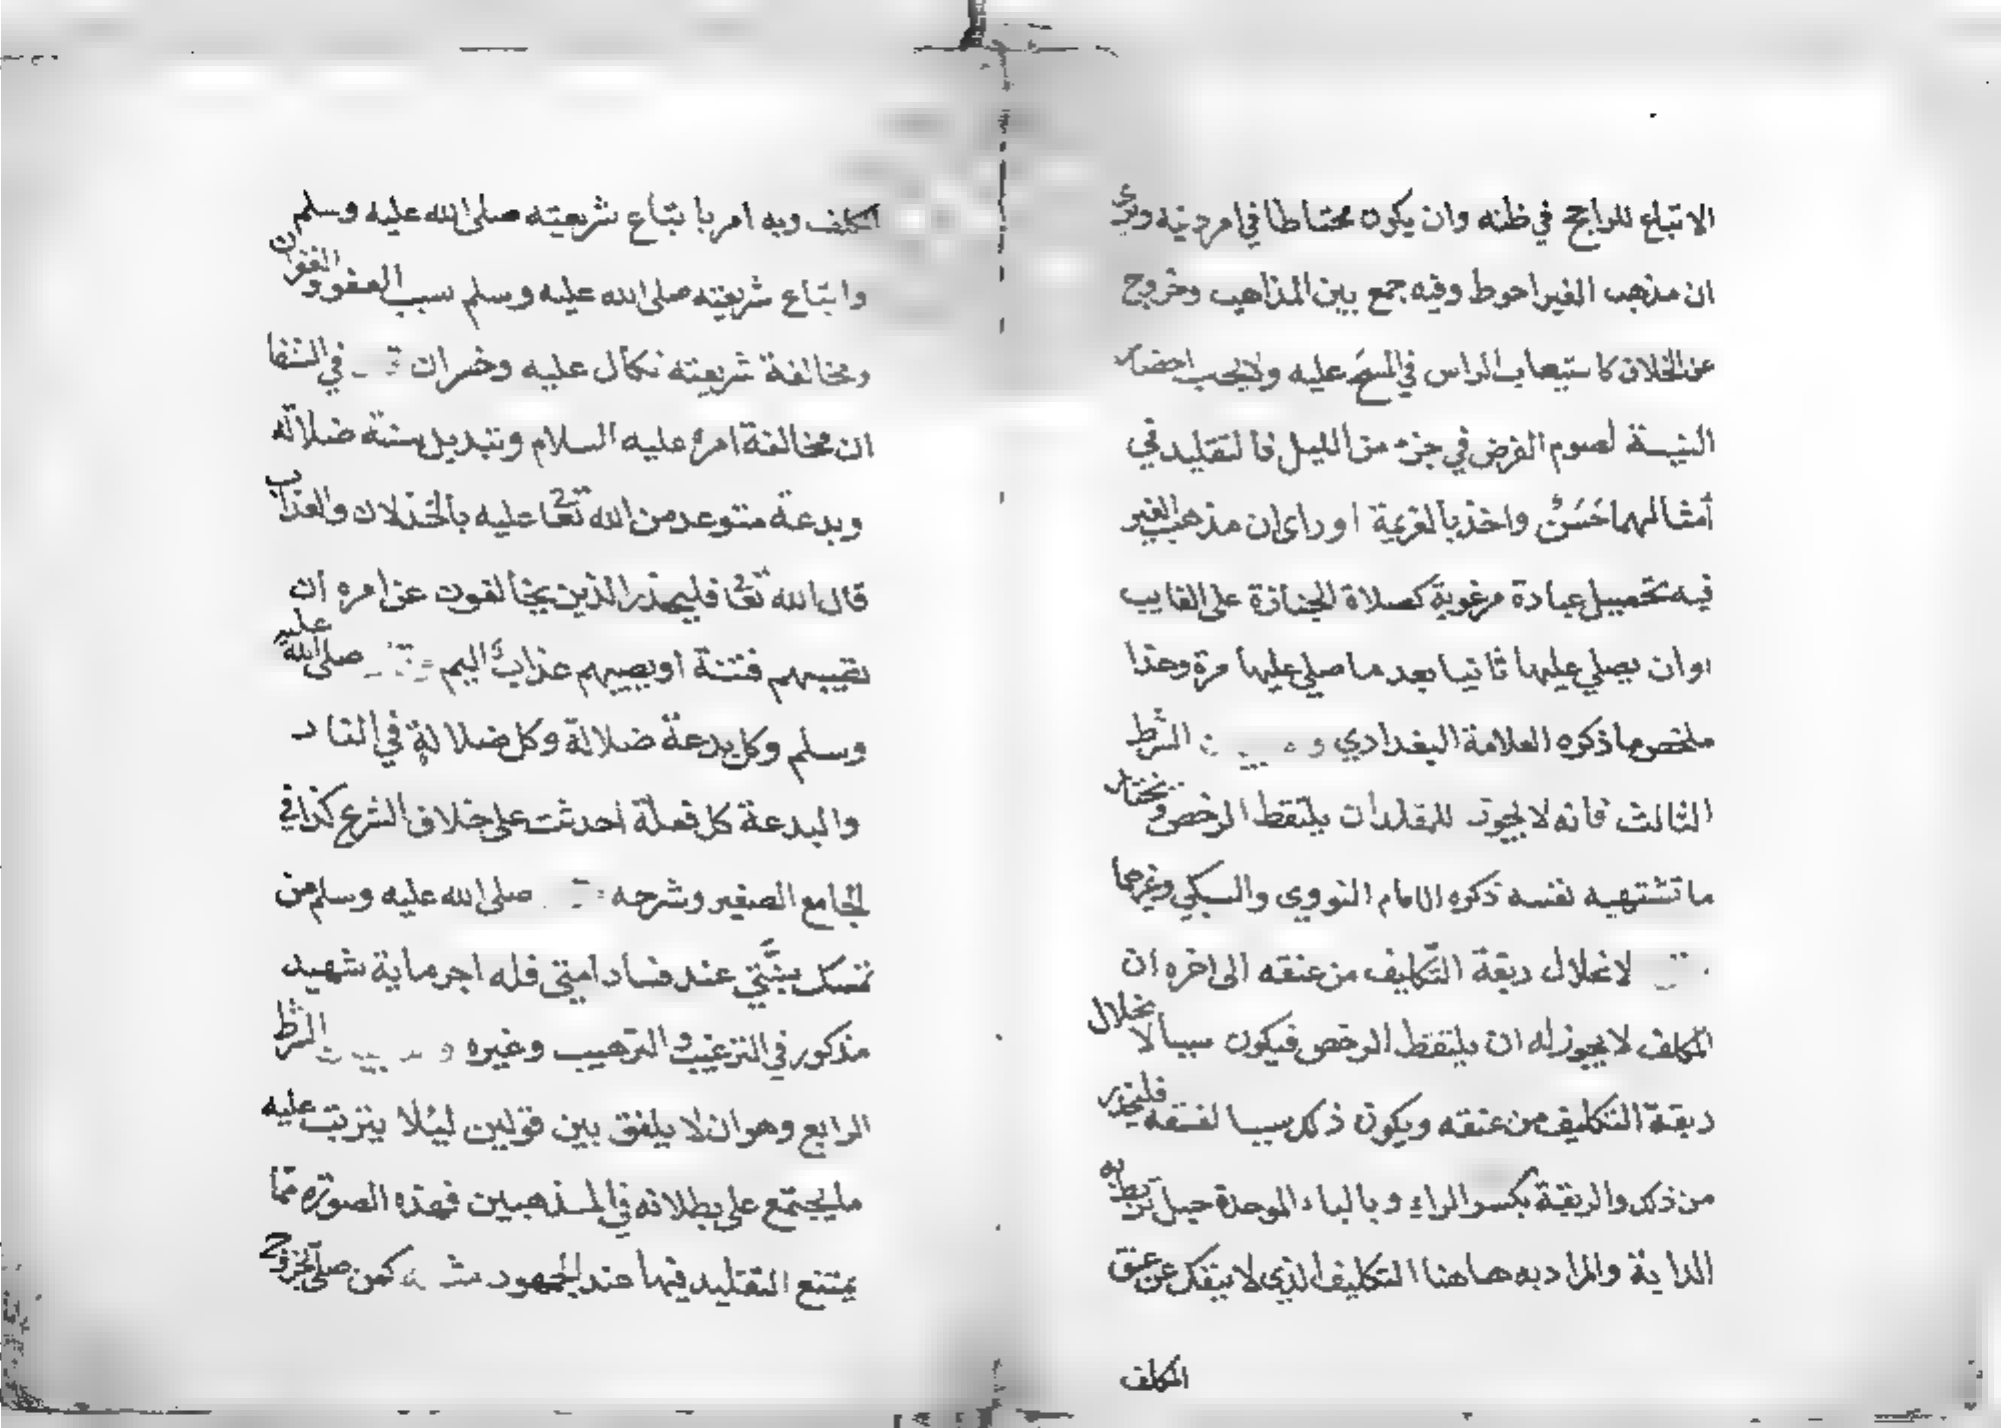 الاتباع للراجح في ظنه وان يكون محتاطا في امر دينه ويرى
ان مذهب الغير احوط وفيه جمع بين المذاهب وخروج
عن الخلاف كاستيعاب الراس في المسح عليه ولايجب احضار
النيـة لصوم الفرض في جزء من الليل فالتقليد في
أمثالهما حَسَنٌ واخذ بالعزيمة او راى ان مذهب الغير
فيه تحصيل عبادة مرغوبة كصلاة الجنازة على الغايب
او ان يصلي عليها ثانيا بعد ما صلي عليها مرة وهذا
ملخص ما ذكره العلامة البغدادي و الشرط
الثالث فانه لا يجوز للمقلد ان يلتقط الرخص ويختار
ما تشتهيه نفسه ذكره الامام النووي والسبكي وغيرهما
لانحلال ربقة التكليف من عنقه الى اخره ان
المكلف لا يجوز له ان يلتقط الرخص فيكون سببا لانحلال
ربقة التكليف من عنقه ويكون ذكك سببا لفسقه فليحذر
من ذكك والربقة بكسر الراء وبالباء الموحدة حبل تربط به
الداية والمراد به هاهنا التكليف الذي لا ينفك عن عنق
المكلف
المكلف وبه امر باتباع شريعته صلى الله عليه وسلم
واتباع شريعته صلى الله عليه وسلم سبب العفو والغفران
ومخالفة شريعته نكال عليه وخسران في الشفا
ان مخالفة امره عليه السلام وتبديل سنته ضلالة
وبدعة متوعد من الله تعا عليه بالخذلان والعذاب
قال الله تعا فليحذر الذين يخالفون عن امره ان
تصيبهم فتنة او يصيبهم عذاب اليم صلى الله عليه
وسلم وكل بدعة ضلالة وكل ضلالة في النار
والبدعة كل فعلة احدثت على خلاف الشرع كذا في
الجامع الصغير وشرحه صلى الله عليه وسلم من
تمسك بسنتي عند فساد امتي فله اجر ماية شهيد
مذكور في الترغيب والترهيب وغيره و الشرط
الرابع وهو ان لا يلفق بين قولين ليئلا يترتب عليه
ما يجتمع على بطلانه في المذهبين فهذه الصورة مما
يمتنع التقليد فيها عند الجمهور كمن صلى بخروج